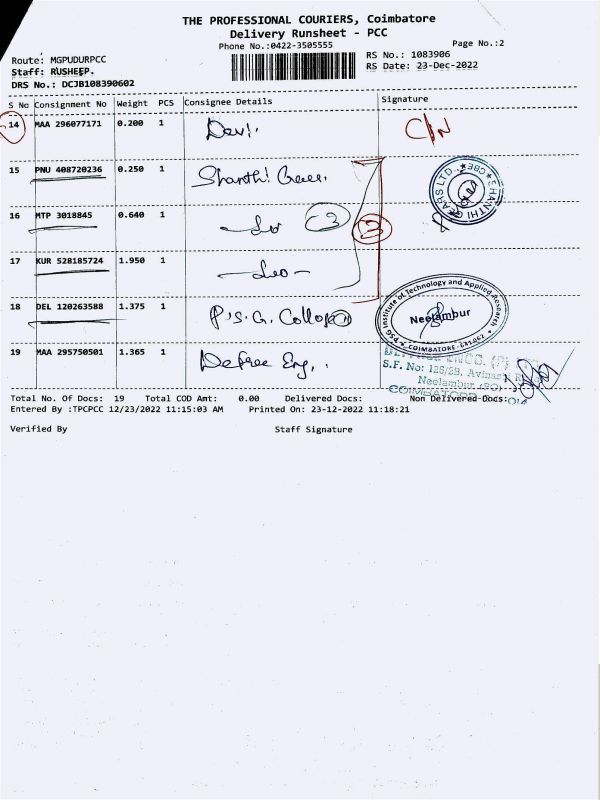 THE PROFESSIONAL COURIERS, Coimbatore
Delivery Runsheet - PCC
Phone No.:0422-3505555
Page No.:2
Route: MGPUDURPCC
RS No.: 1083906
Staff: RUSHEEP.
RS Date: 23-Dec-2022
DRS No.: DCJB108390602
S No Consignment No Weight PCS Consignee Details Signature
14 MAA 296077171 0.200 1 Devi. C/N
15 PNU 408720236 0.250 1 Shanthi Gears. SHANTHI GEARS LTD., CBE
16 MTP 3018845 0.640 1 3 3
17 KUR 528185724 1.950 1
18 DEL 120263588 1.375 1 P.S.G. College 1 PSG Institute of Technology and Applied Research Neelambur COIMBATORE-641062
19 MAA 295750501 1.365 1 S.F. No: 126/2B, Avinashi
Neelambur (PO)
COIMBATORE
Total No. Of Docs: 19 Total COD Amt: 0.00 Delivered Docs: Non Delivered Docs:
Entered By :TPCPCC 12/23/2022 11:15:03 AM Printed On: 23-12-2022 11:18:21
Verified By Staff Signature